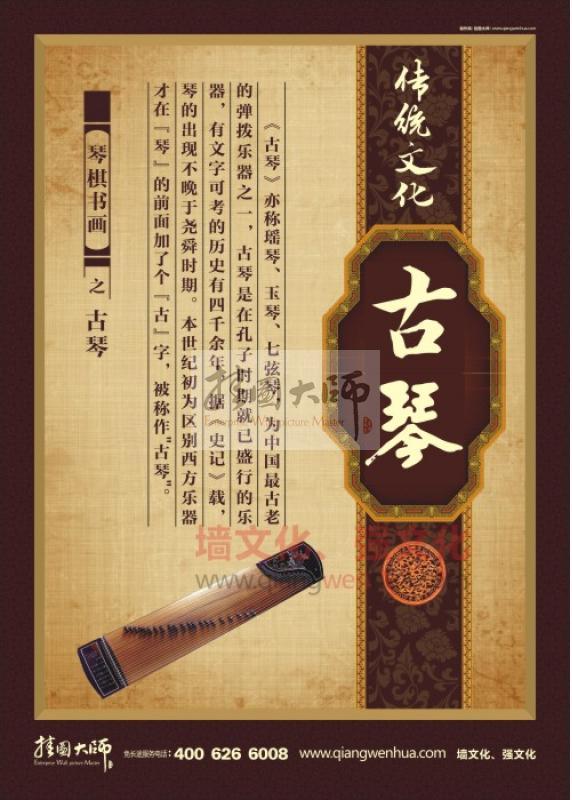 挂图大师 www.qiangwenhua.com
传统文化
古琴
《古琴》亦称瑶琴、玉琴、七弦琴，为中国最古老
的弹拨乐器之一，古琴是在孔子时期就已盛行的乐
器，有文字可考的历史有四千余年，据《史记》载，
琴的出现不晚于尧舜时期。本世纪初为区别西方乐器
才在『琴』的前面加了个『古』字，被称作"古琴"。
琴棋书画
之古琴
挂图大师
Enterprise Wall picture Master
墙文化、强文化
www.qiangwenhua.com
挂图大师
Enterprise Wall picture Master
免长途服务电话：400 626 6008
www.qiangwenhua.com
墙文化、强文化